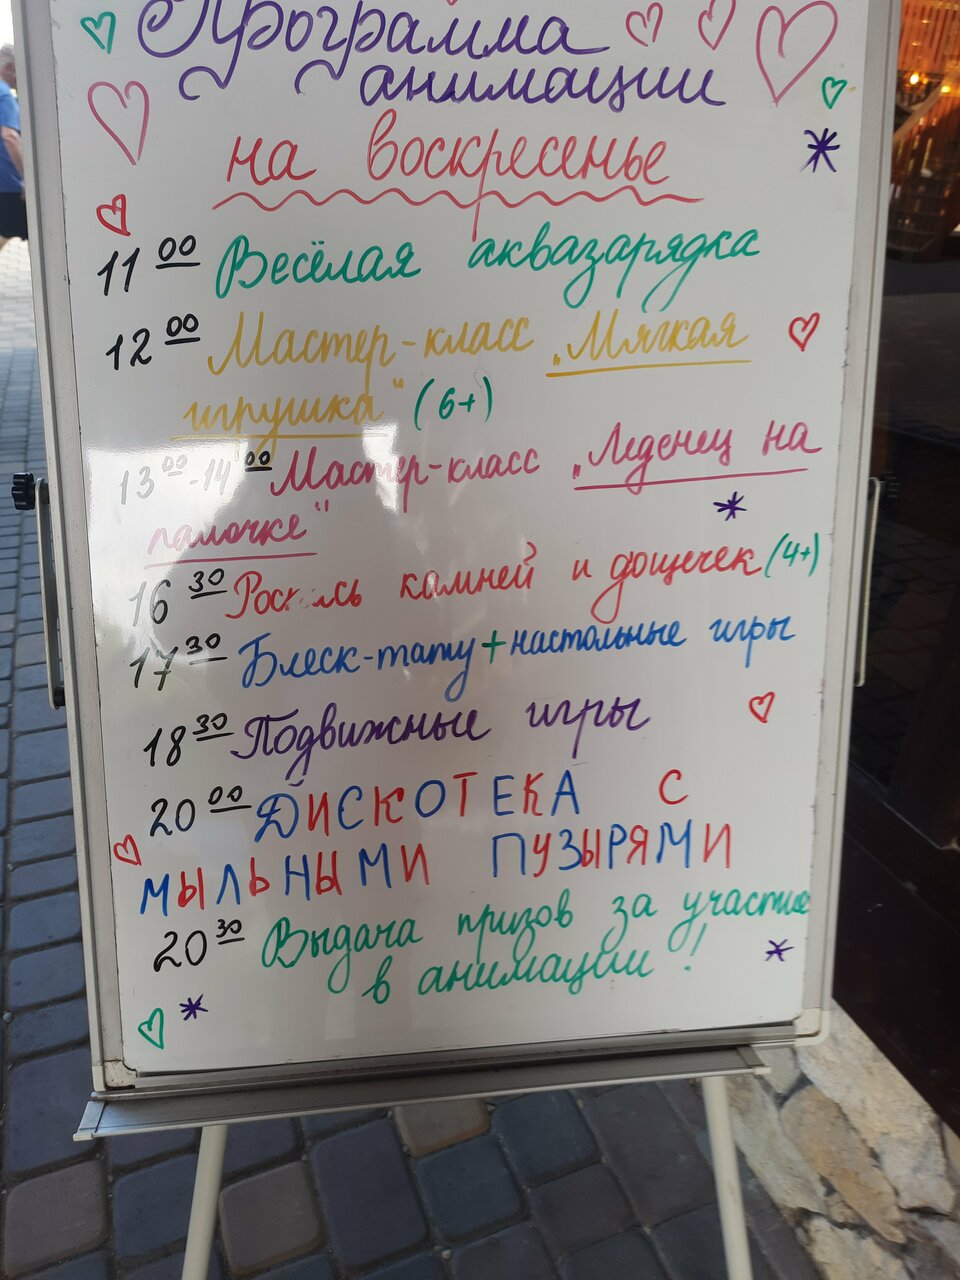 Программа
анимации
на воскресенье
11 00 Весёлая аквазарядка
12 00 Мастер-класс „Мягкая
игрушка" (6+)
13 00-14 00 Мастер-класс „Леденец на
палочке"
16 30 Роспись камней и дощечек (4+)
17 30 Блеск-тату + настольные игры
18 30 Подвижные игры
20 00 ДИСКОТЕКА С
МЫЛЬНЫМИ ПУЗЫРЯМИ
20 30 Выдача призов за участие
в анимации!